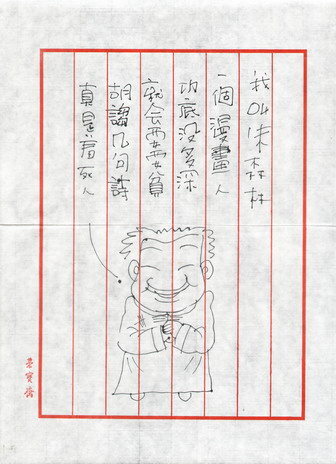 我叫朱森林
一個漫畫人
功底没多深
就会耍耍貧
胡謅几句詩
真是死人
榮寶齋